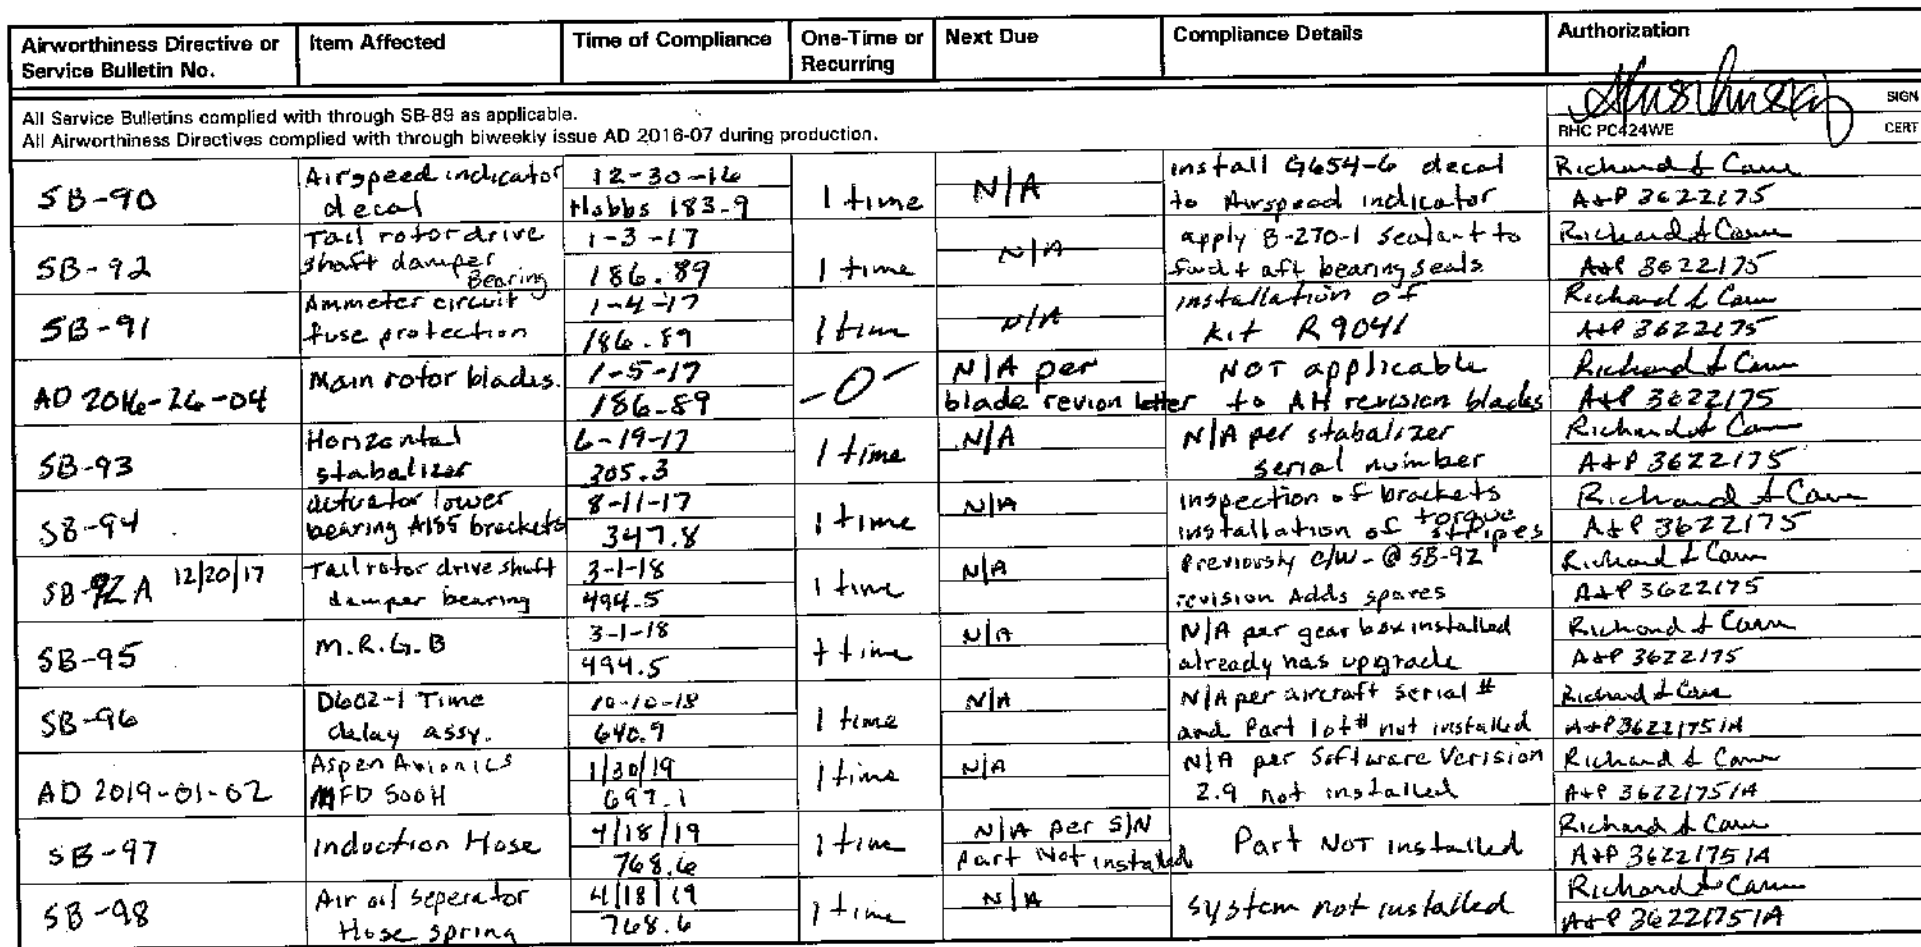 Airworthiness Directive or Service Bulletin No. | Item Affected | Time of Compliance | One-Time or Recurring | Next Due | Compliance Details | Authorization
All Service Bulletins complied with through SB-89 as applicable.
All Airworthiness Directives complied with through biweekly issue AD 2016-07 during production.
SIGN
RHC PC424WE CERT
SB-90 | Airspeed indicator decal | 12-30-16 Hobbs 183.9 | 1 time | N/A | install G654-6 decal to Airspeed indicator | Richard A&P 3622175
SB-92 | Tail rotor drive shaft damper Bearing | 1-3-17 186.89 | 1 time | N/A | apply B-270-1 sealant to fwd + aft bearing seals | Richard A&P 3622175
SB-91 | Ammeter circuit fuse protection | 1-4-17 186.89 | 1 time | N/A | installation of kit R9041 | Richard A&P 3622175
AD 2016-26-04 | Main rotor blades. | 1-5-17 186.89 | -0- | N/A per blade revion letter | NOT applicable to AH revision blades | Richard A&P 3622175
SB-93 | Horizontal stabalizer | 6-19-17 305.3 | 1 time | N/A | N/A per stabalizer serial number | Richard A&P 3622175
SB-94 | actuator lower bearing A155 brackets | 8-11-17 347.8 | 1 time | N/A | inspection of brackets installation of torque stripes | Richard A&P 3622175
SB-92A 12/20/17 | Tail rotor drive shaft damper bearing | 3-1-18 494.5 | 1 time | N/A | Previously c/w - @ SB-92 revision Adds spares | Richard A&P 3622175
SB-95 | M.R.G.B | 3-1-18 494.5 | 1 time | N/A | N/A per gear box installed already has upgrade | Richard A&P 3622175
SB-96 | D602-1 Time delay assy. | 10-10-18 640.9 | 1 time | N/A | N/A per aircraft serial # and Part lot# not installed | Richard A+P 3622175IA
AD 2019-01-02 | Aspen Avionics MFD 500H | 1/30/19 697.1 | 1 time | N/A | N/A per Software Verision 2.9 not installed | Richard A+P 3622175IA
SB-97 | Induction Hose | 4/18/19 768.6 | 1 time | N/A per S/N Part Not installed | Part NOT installed | Richard A+P 3622175IA
SB-98 | Air oil seperator Hose spring | 4/18/19 768.6 | 1 time | N/A | system not installed | Richard A+P 3622175IA